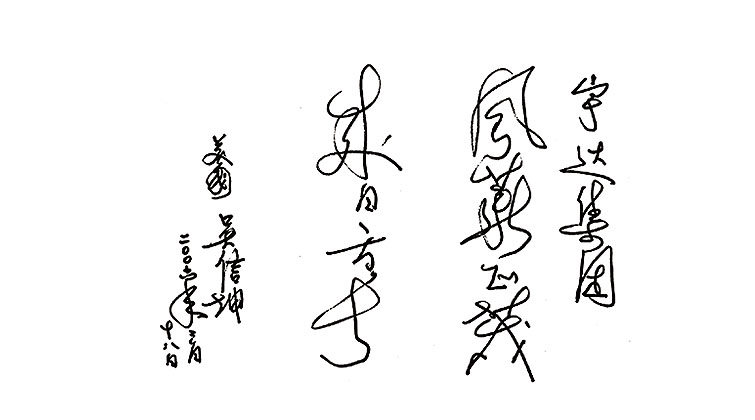 宇达集团
风華正茂
来日方长
美國 吴信坤
二〇〇六年三月
十八日